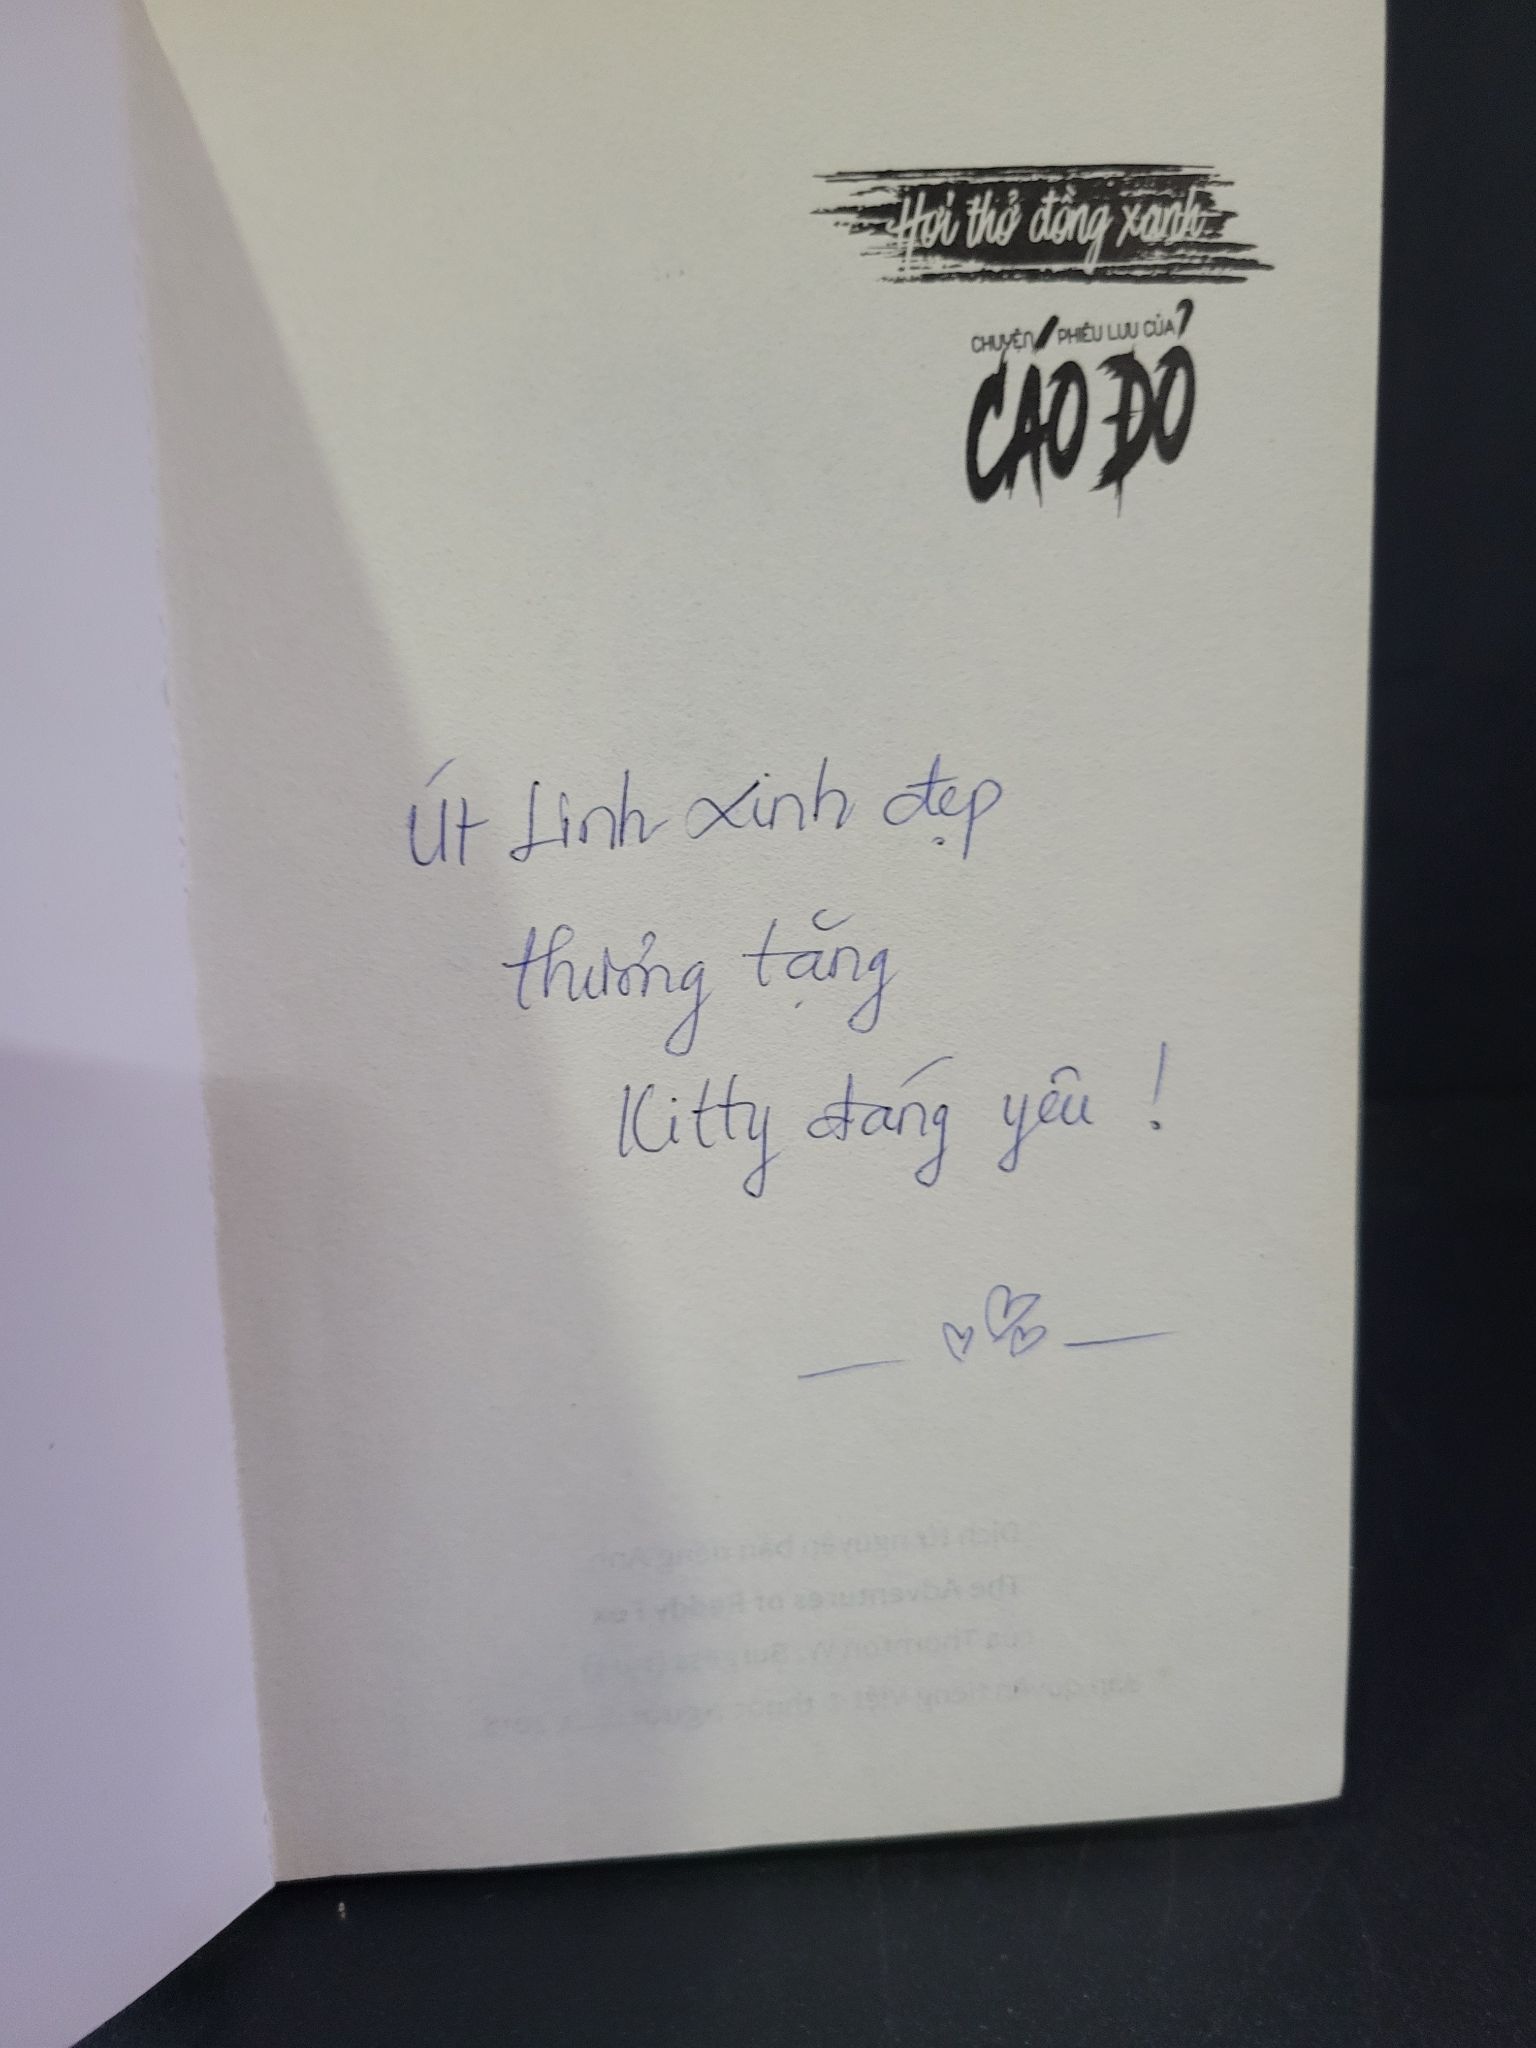 Hơi thở đồng xanh
CHUYỆN PHIÊU LƯU CỦA
CÁO ĐỎ
Út Linh xinh đẹp
thương tặng
Kitty đáng yêu !
Dịch từ nguyên bản tiếng Anh
The Adventures of Reddy Fox
của Thornton W. Burgess